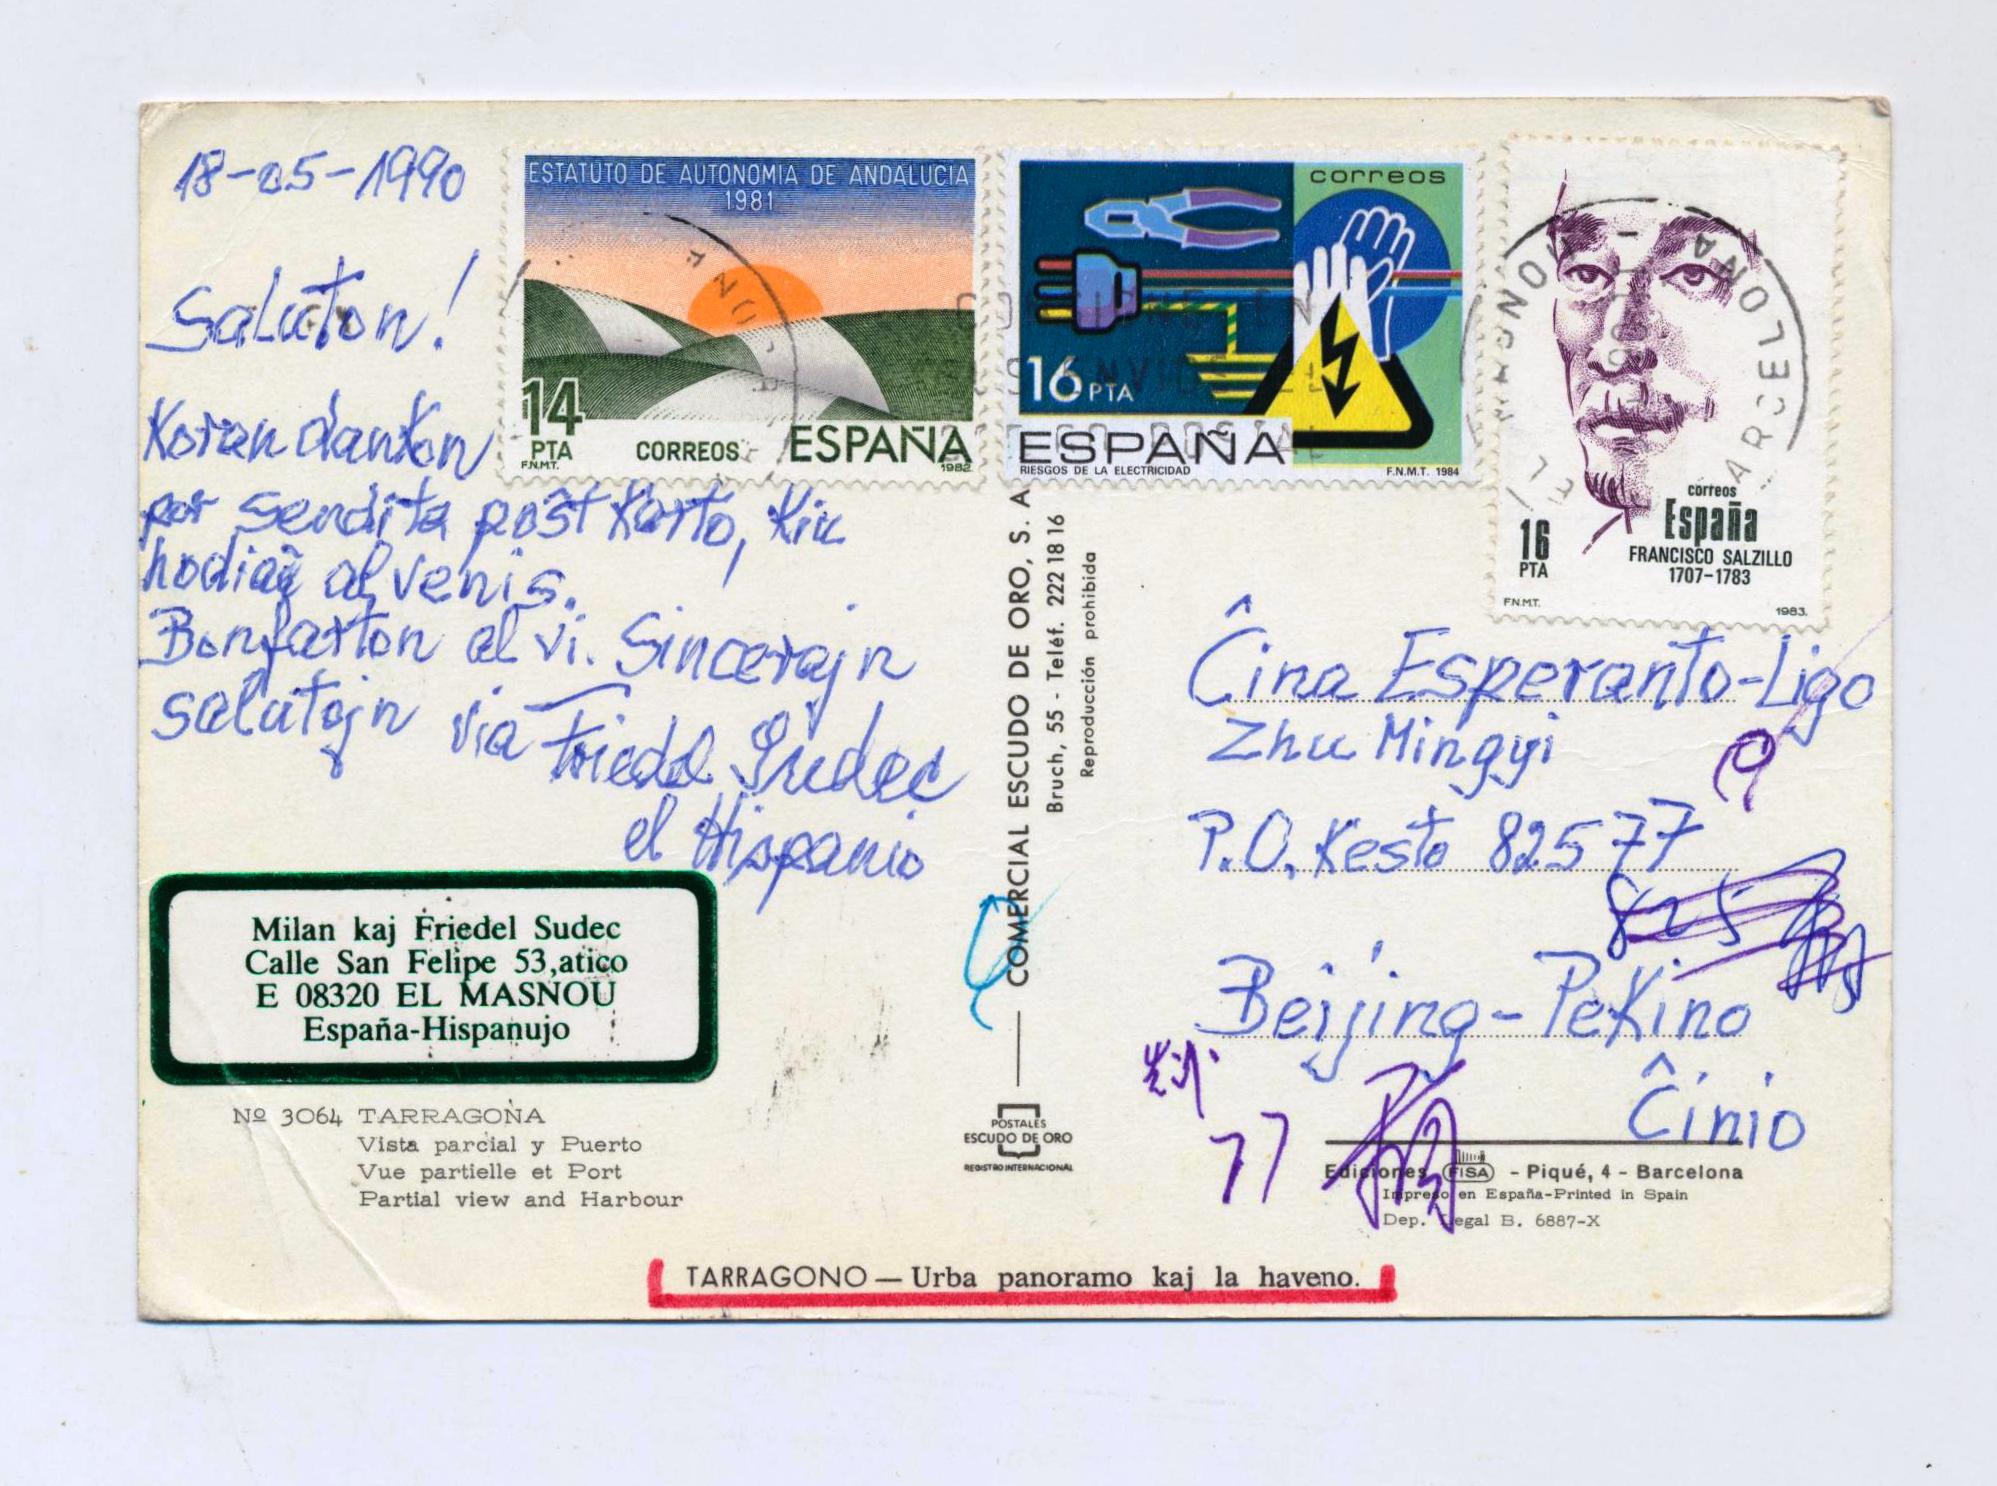 18-05-1990
Saluton!
Koran dankon
por sendita poŝtkarto, kiu
hodiaŭ alvenis.
Bonfarton al vi. Sincerajn
salutojn via Friedel Sudec
el Hispanio
Milan kaj Friedel Sudec
Calle San Felipe 53,atico
E 08320 EL MASNOU
España-Hispanujo
Nº 3064 TARRAGONA
Vista parcial y Puerto
Vue partielle et Port
Partial view and Harbour
TARRAGONO — Urba panoramo kaj la haveno.
COMERCIAL ESCUDO DE ORO, S. A.
Bruch, 55 - Teléf. 222 18 16
Reproducción prohibida
POSTALES
ESCUDO DE ORO
REGISTRO INTERNACIONAL
ESTATUTO DE AUTONOMIA DE ANDALUCIA
1981
14
PTA
F.N.M.T.
CORREOS
ESPAÑA
1982
correos
16 PTA
ESPAÑA
RIESGOS DE LA ELECTRICIDAD
F.N.M.T. 1984
correos
España
16
PTA
FRANCISCO SALZILLO
1707-1783
F.N.M.T.
1983.
BARCELONA
Ĉina Esperanto-Ligo
Zhu Mingyi
P.O. Kesto 82577
825
Beijing-Pekino
Ĉinio
77
Ediciones FISA - Piqué, 4 - Barcelona
Impreso en España-Printed in Spain
Dep. Legal B. 6887-X